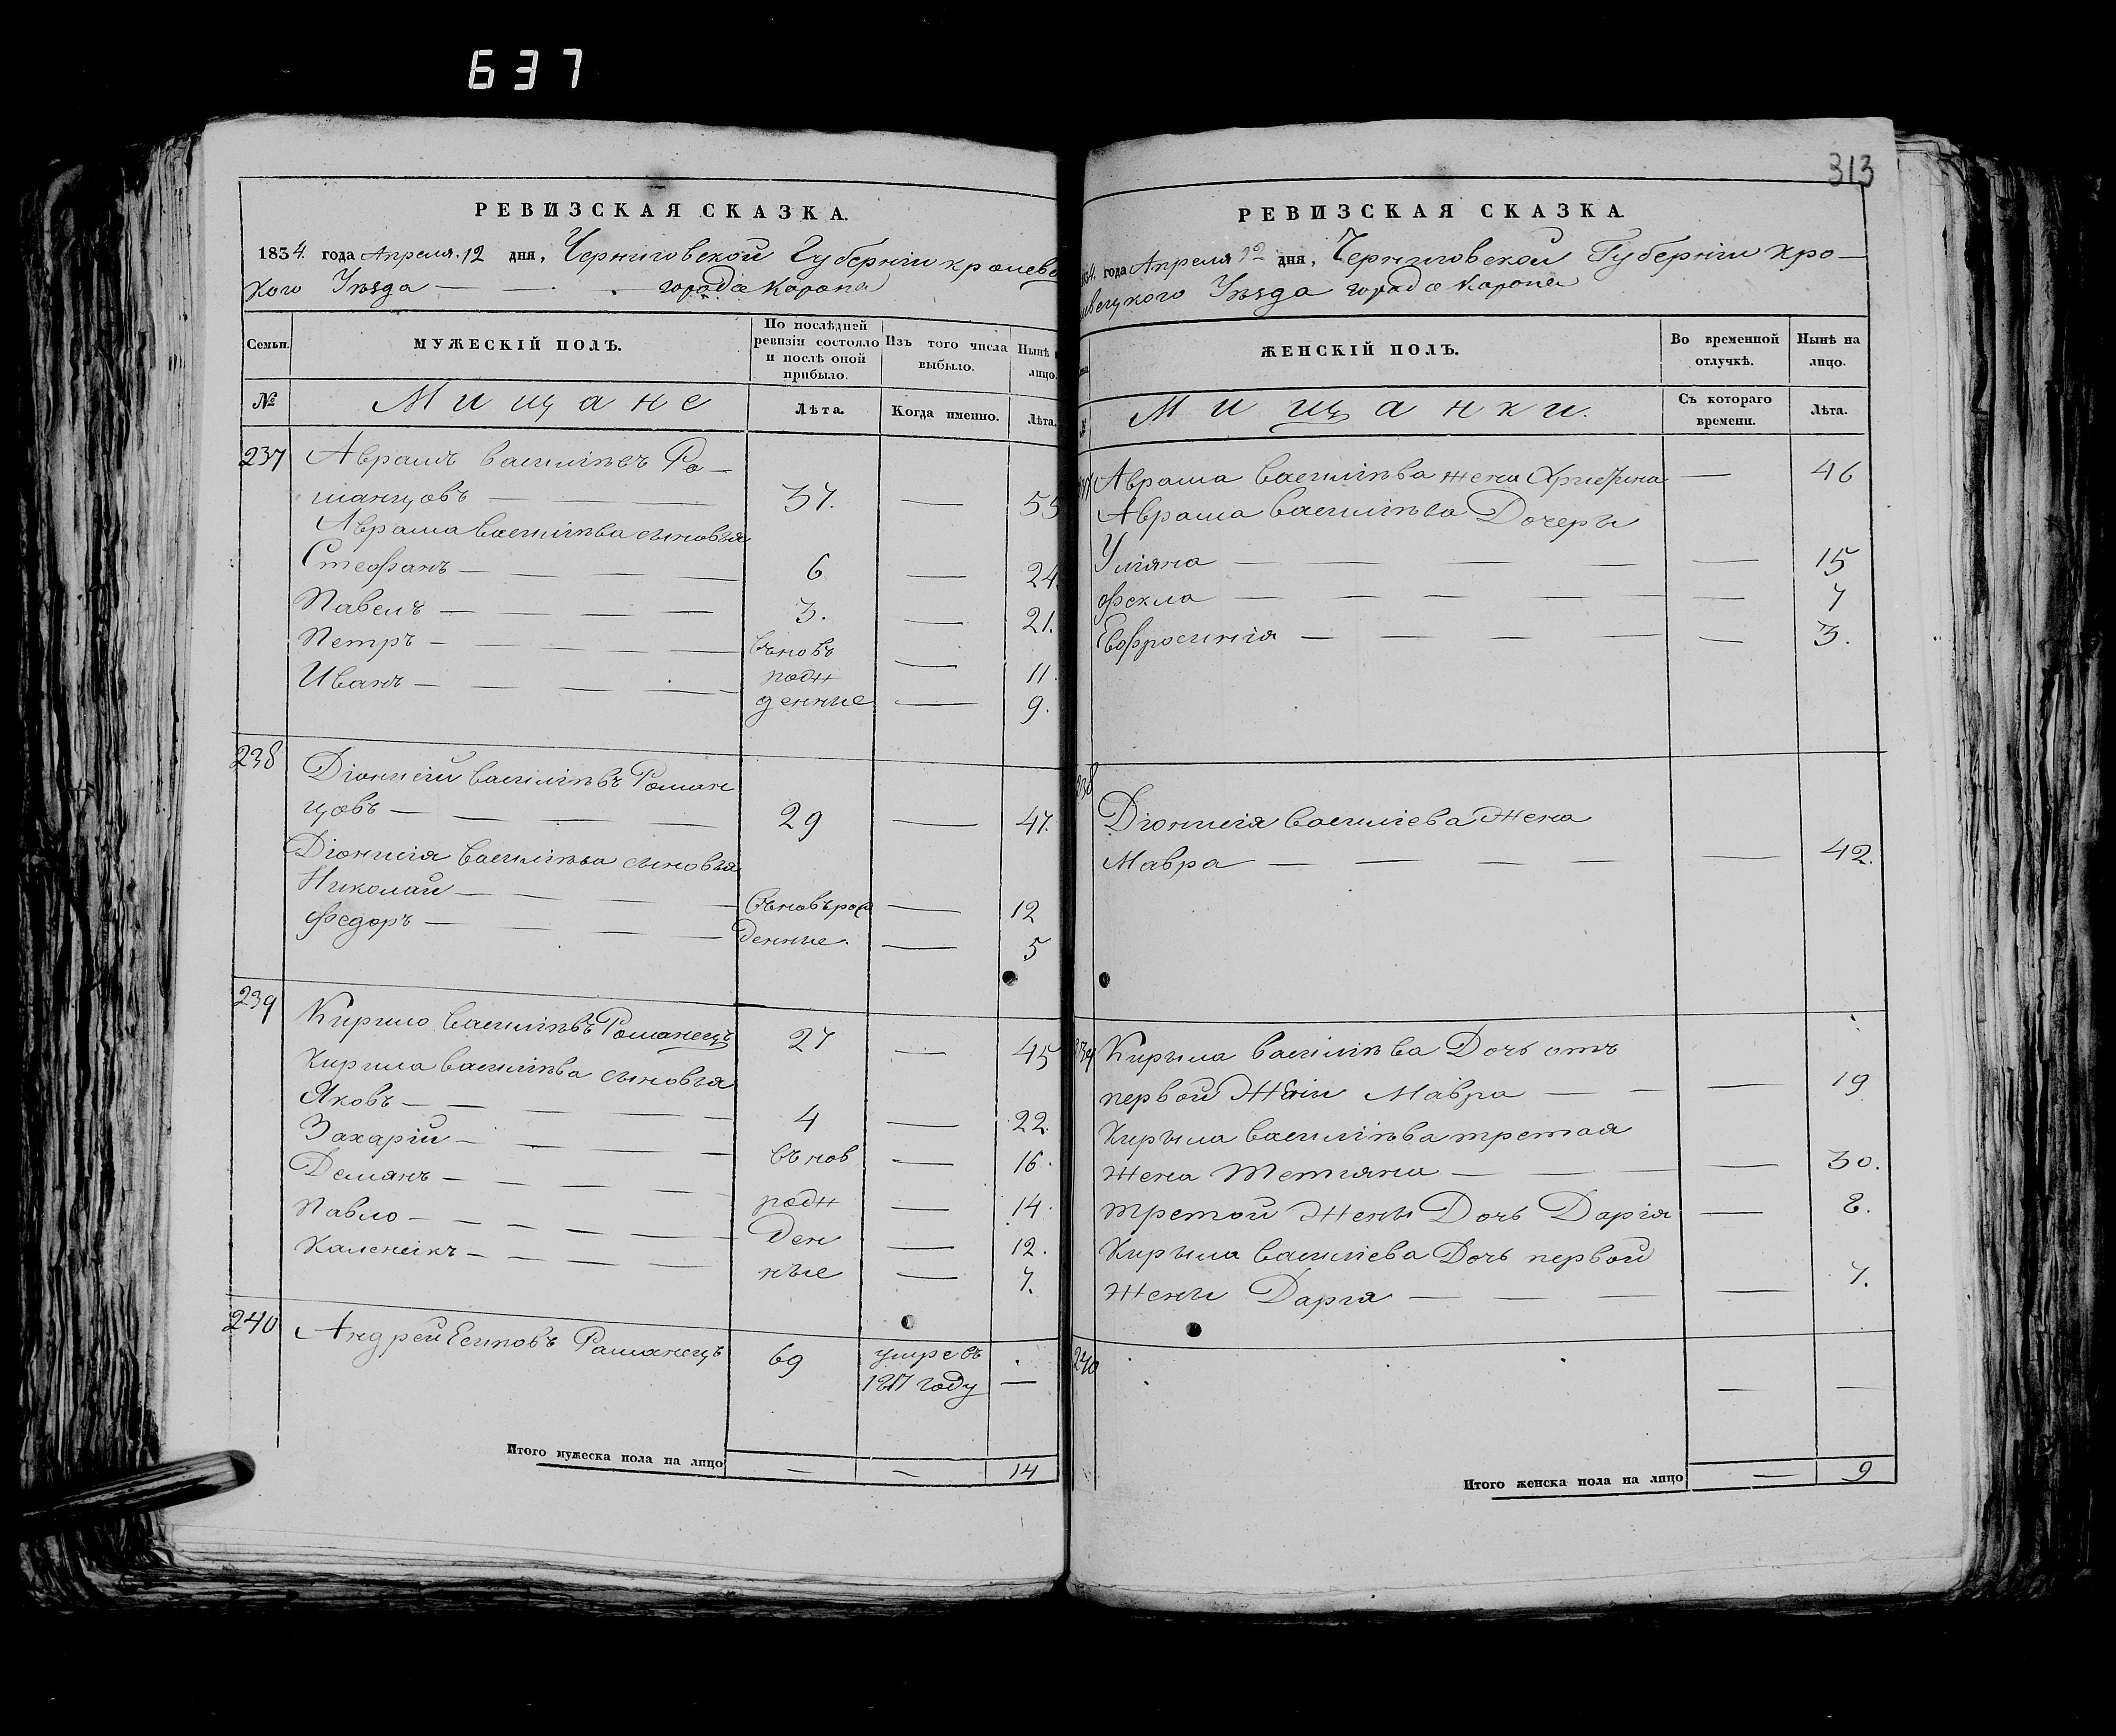 637
313
РЕВИЗСКАЯ СКАЗКА.
1834. года Апреля. 12 дня, Черниговской Губерніи кролевец
кого Уѣзда — — — города Коропа
Семьи.
МУЖЕСКІЙ ПОЛЪ.
По послѣдней ревизіи состояло и послѣ оной прибыло.
Изъ того числа выбыло.
Нынѣ на лицо.
№
Мищане
Лѣта.
Когда именно.
Лѣта.
237 Аврамъ Василіевъ Ро-
манцовъ — — 37. — 55
Аврама Василіѣва сыновья
Стефанъ — — — — 6 — 24
Павелъ — — — — 3. — 21.
Петръ — — — — вьновъ — 11.
Иванъ — — — — рож денние — 9.
238 Діонисій Василіѣвъ Роман
цовъ — — — — 29 — 47.
Діонисія Василіѣва сыновья
Николай — — — вьновъ рож — 12
Федоръ — — — — денние. — 5
239 Кирило Василіѣвъ Романецъ 27 — 45
Кирила Василіѣва сыновья
Яковъ — — — — 4 — 22.
Захарій — — — вънов — 16.
Демянъ — — — — рож — 14.
Павло — — — — ден — 12.
Каленикъ — — — — ные — 7.
240 Андрей Есиповъ Романецъ 69 умре въ
1817 году —
Итого мужеска пола на лицо — — 14
РЕВИЗСКАЯ СКАЗКА
года Апреля 12 дня, Черниговской Губерніи Кро-
левецкого Уѣзда города Коропа
№
ЖЕНСКІЙ ПОЛЪ.
Во временной отлучкѣ.
Нынѣ на лицо.
Мищанки.
Съ котораго времени.
Лѣта.
237 Аврама Василіѣва жена Христина — 46
Аврама Василіѣва Дочери
Уліяна — — — — — 15
Фекла — — — — — 7
Евфросинія — — — — — 3.
238 Діонисія Василіева Жена
Мавра — — — — — 42.
239 Кирыла Василіѣва Дочь отъ
первой Жени Мавра — — — 19
Кирыла Василіѣва третая
жена Тетіяна — — — — 30.
третой Жены Дочь Дарія — 8.
Кирыла Василіева Дочь первой
жени Дарія — — — — 7.
240 — —
Итого женска пола на лицо — 9